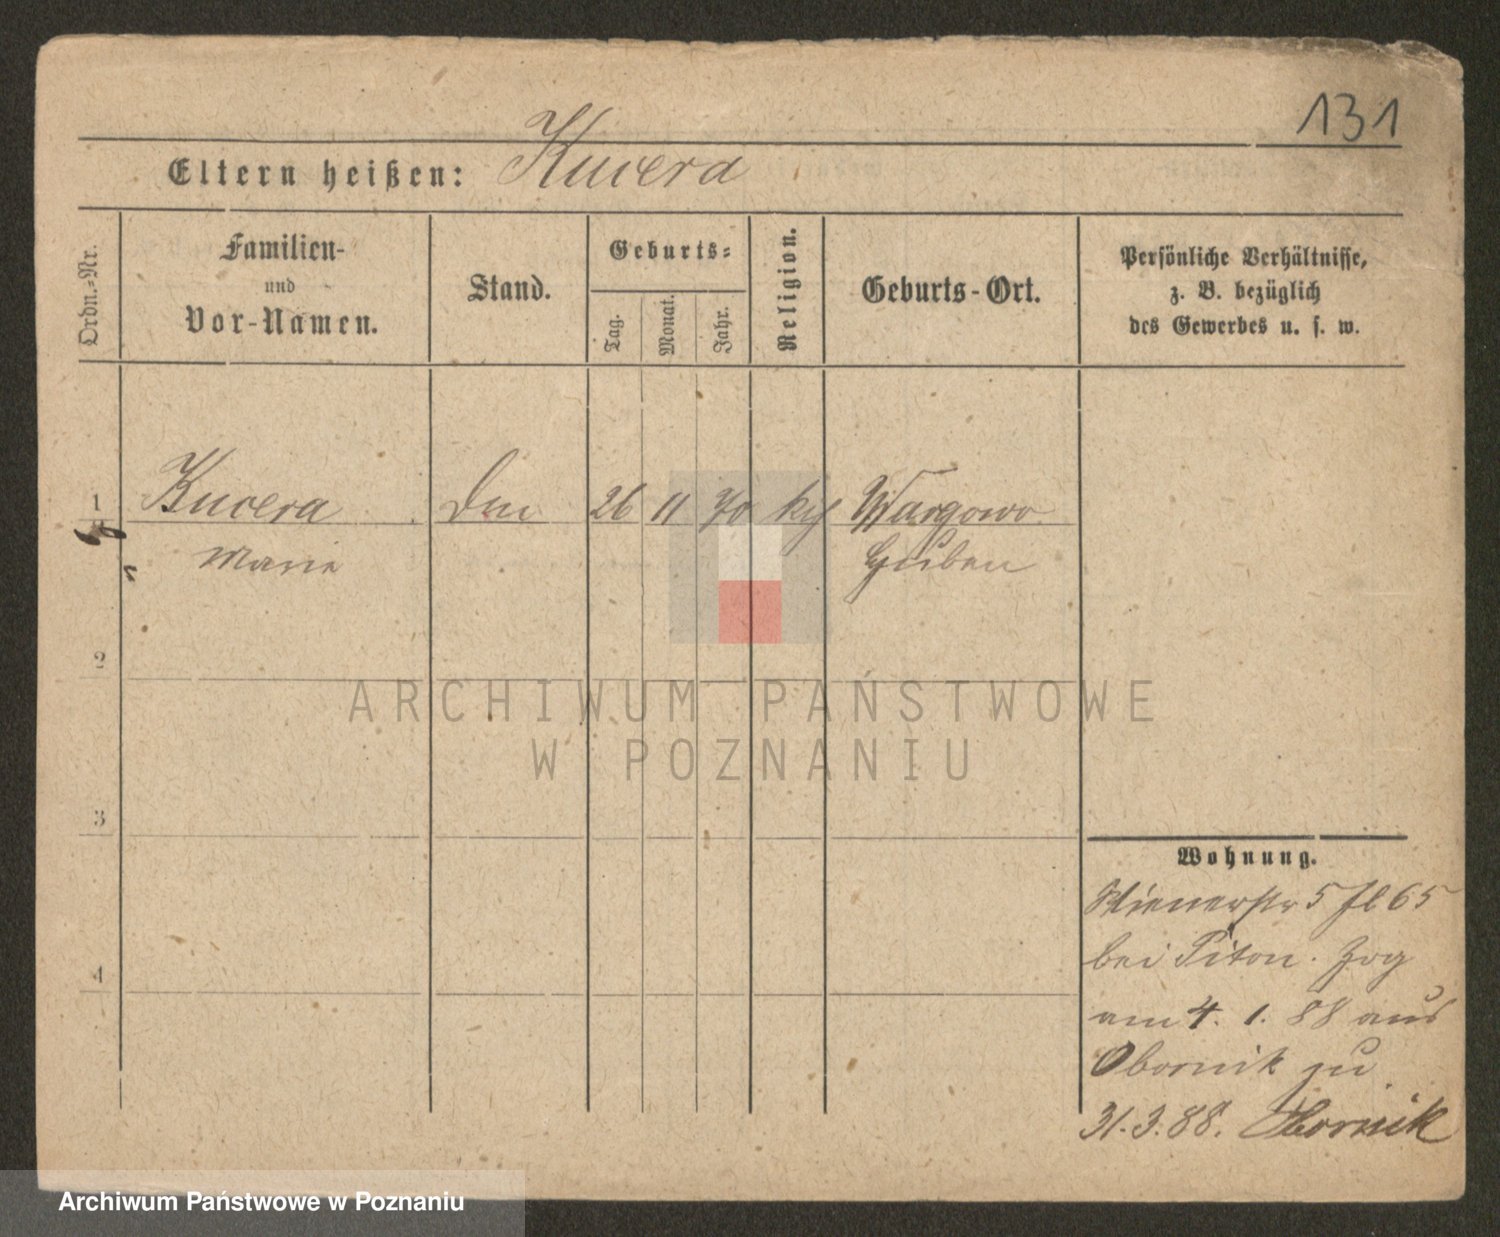 131
Eltern heißen: Kucera
Ordn.-Nr.
Familien-
und
Vor-Namen.
Stand.
Geburts-
Tag.
Monat.
Jahr.
Religion.
Geburts-Ort.
Persönliche Verhältnisse,
z. B. bezüglich
des Gewerbes u. s. w.
1 Kucera 26 11 70 Wargowo
Marie
2
3
4
Wohnung.
5 65
bei Titon. Zog
am 4. 1. 88 aus
Obornik zu
31.3.88. Obornik
ARCHIWUM PAŃSTWOWE
W POZNANIU
Archiwum Państwowe w Poznaniu